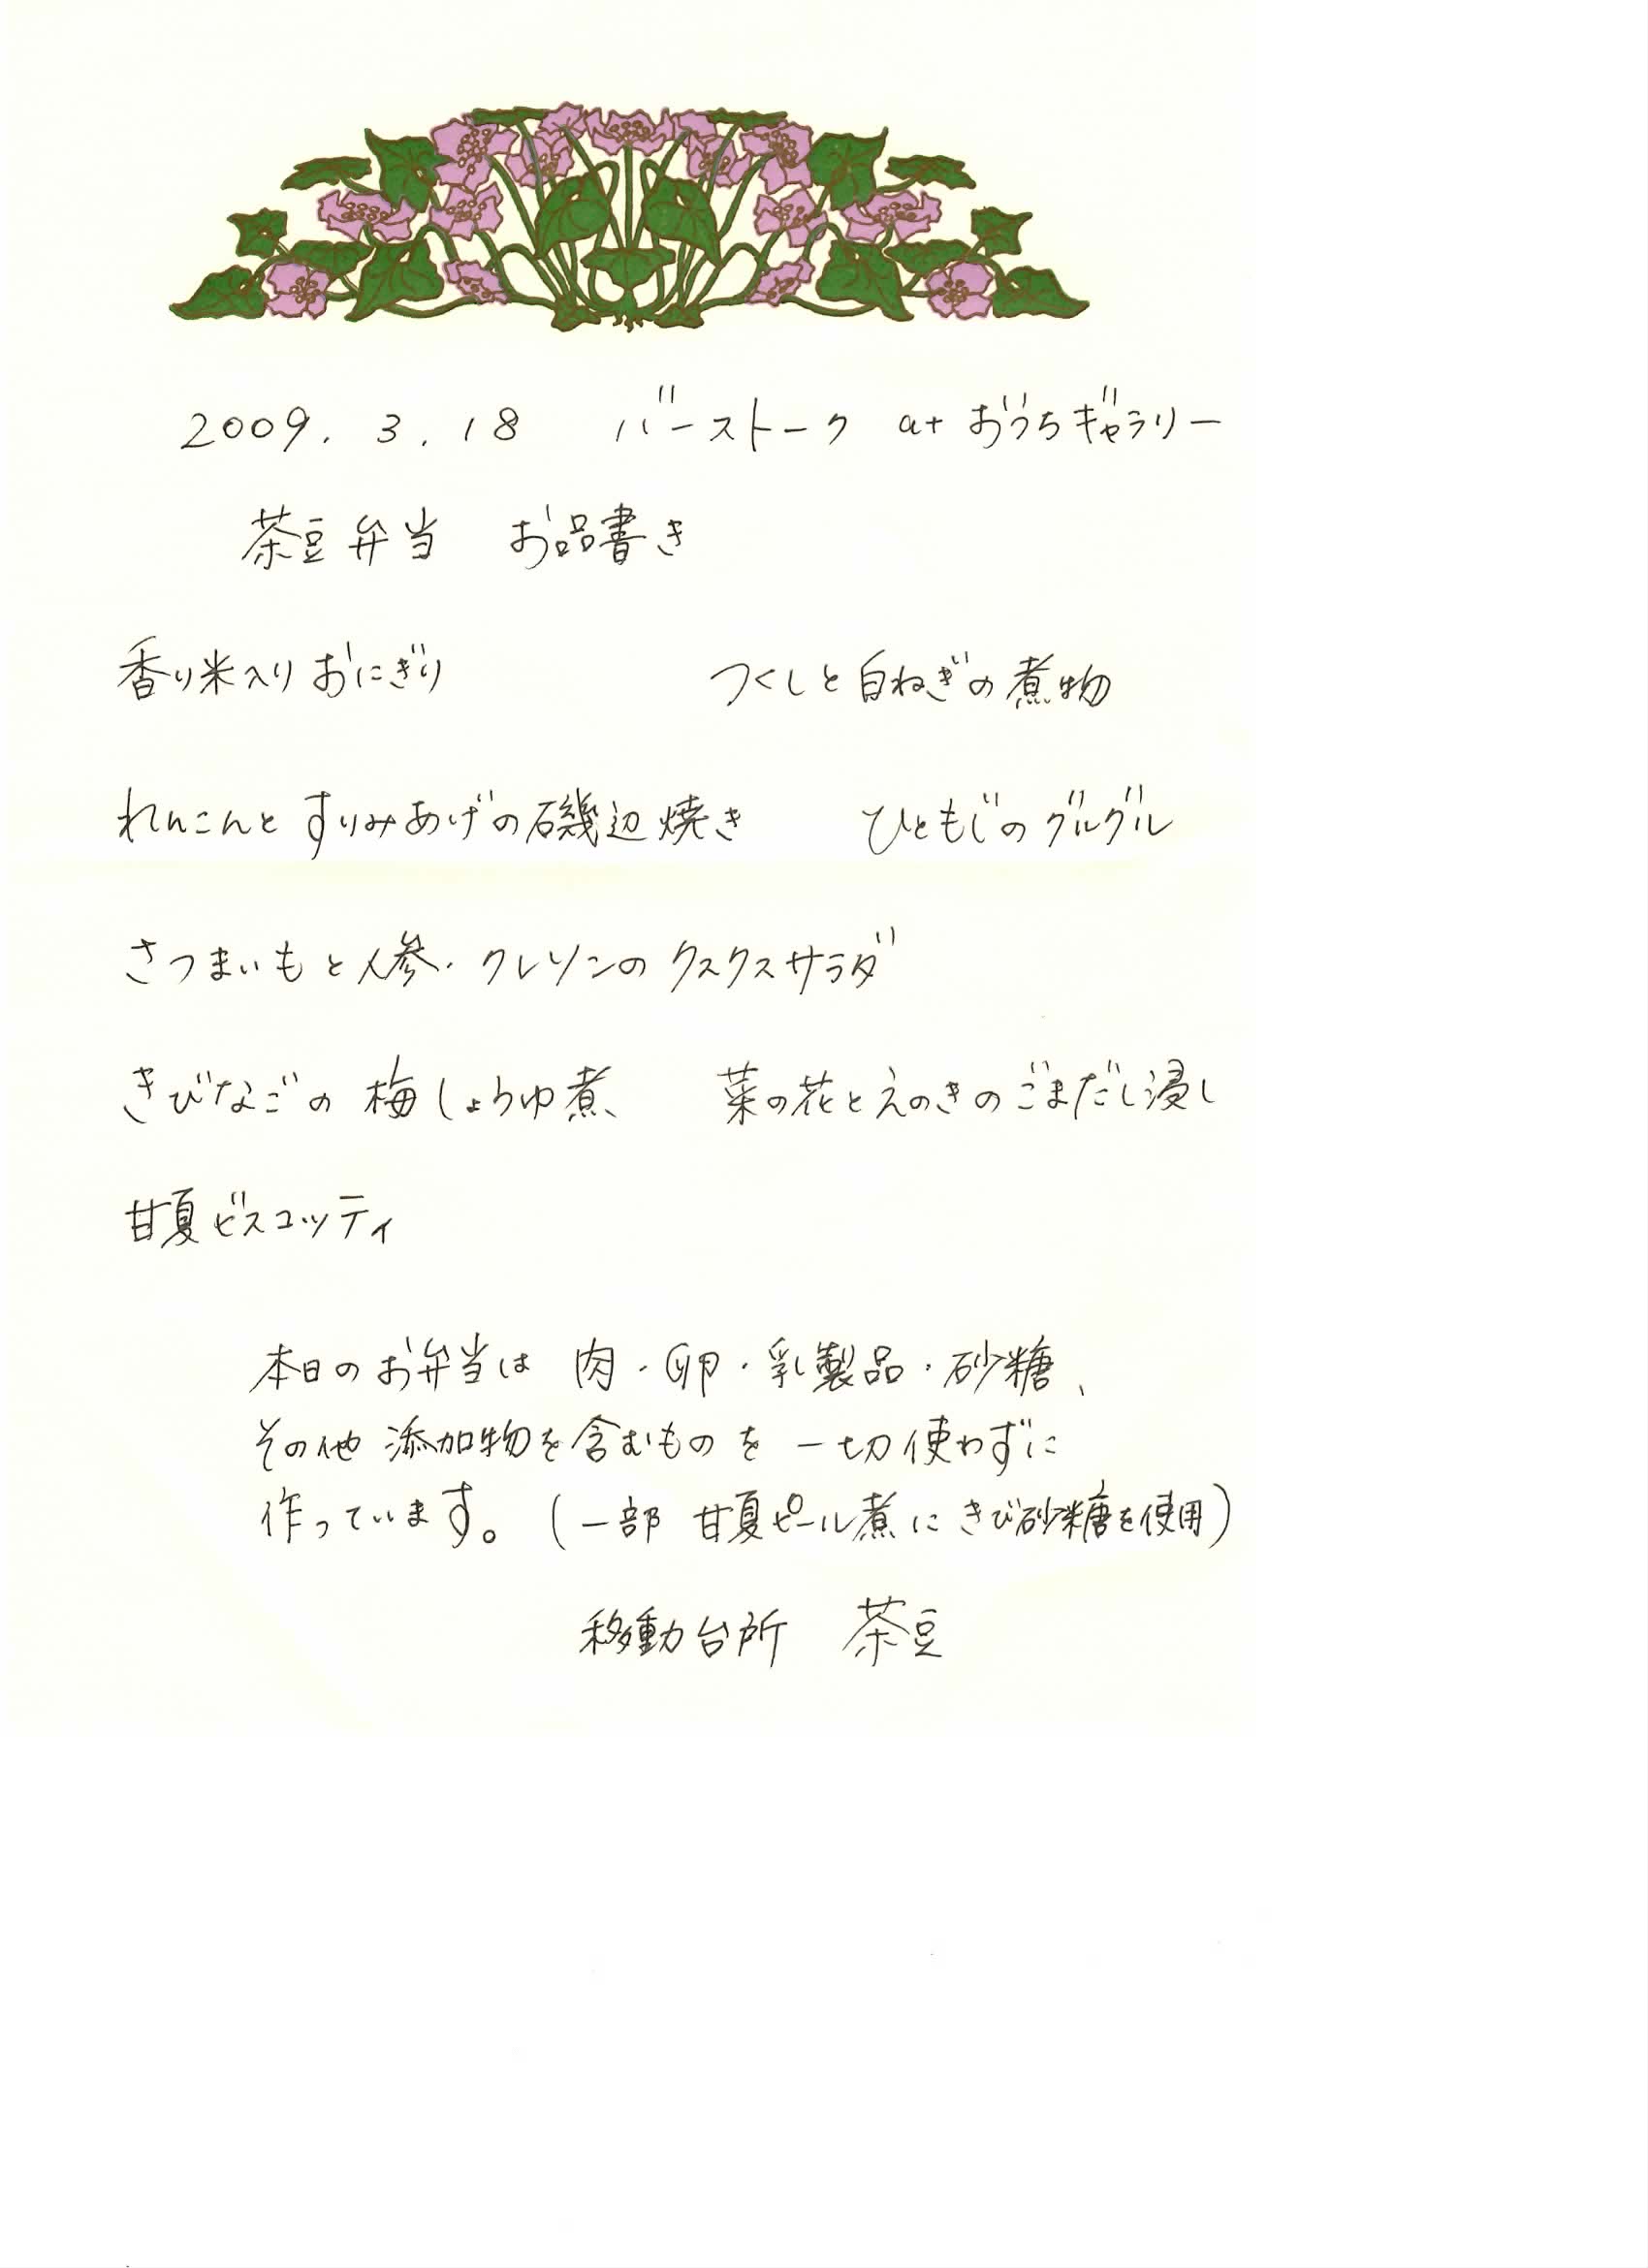 2009. 3. 18　バーストーク　at おうちギャラリー
茶豆弁当　お品書き
香り米入りおにぎり　つくしと白ねぎの煮物
れんこんとすりみあげの磯辺焼き　ひともじのグルグル
さつまいもと人参・クレソンのクスクスサラダ
きびなごの梅しょうゆ煮　菜の花とえのきのごまだし浸し
甘夏ビスコッティ
本日のお弁当は 肉・卵・乳製品・砂糖、
その他 添加物を含むものを 一切使わずに
作っています。(一部 甘夏ピール煮にきび砂糖を使用)
移動台所　茶豆